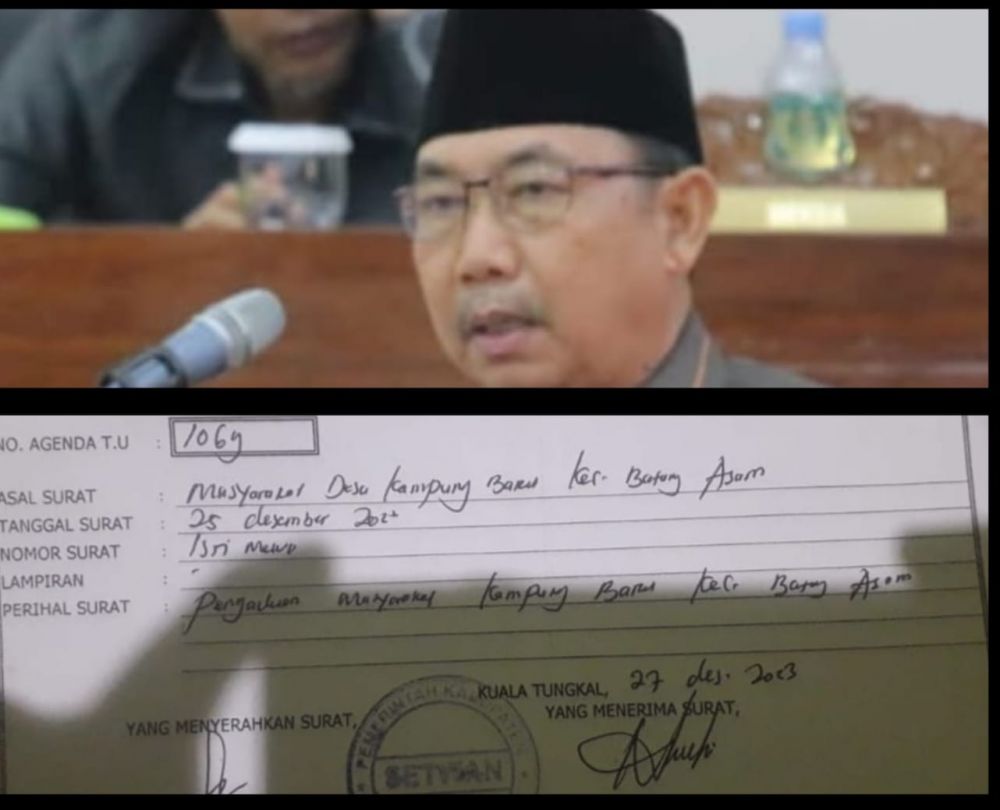 NO. AGENDA T.U : 1064
ASAL SURAT : Masyarakat Desa Kampung Baru Kec. Batang Asam
TANGGAL SURAT : 25 desember
NOMOR SURAT :
LAMPIRAN : -
PERIHAL SURAT : Pengaduan masyarakat Kampung Baru Kec. Batang Asam
KUALA TUNGKAL, 27 des. 2023
YANG MENYERAHKAN SURAT, YANG MENERIMA SURAT,
PEMERINTAH KABUPATEN
SETWAN